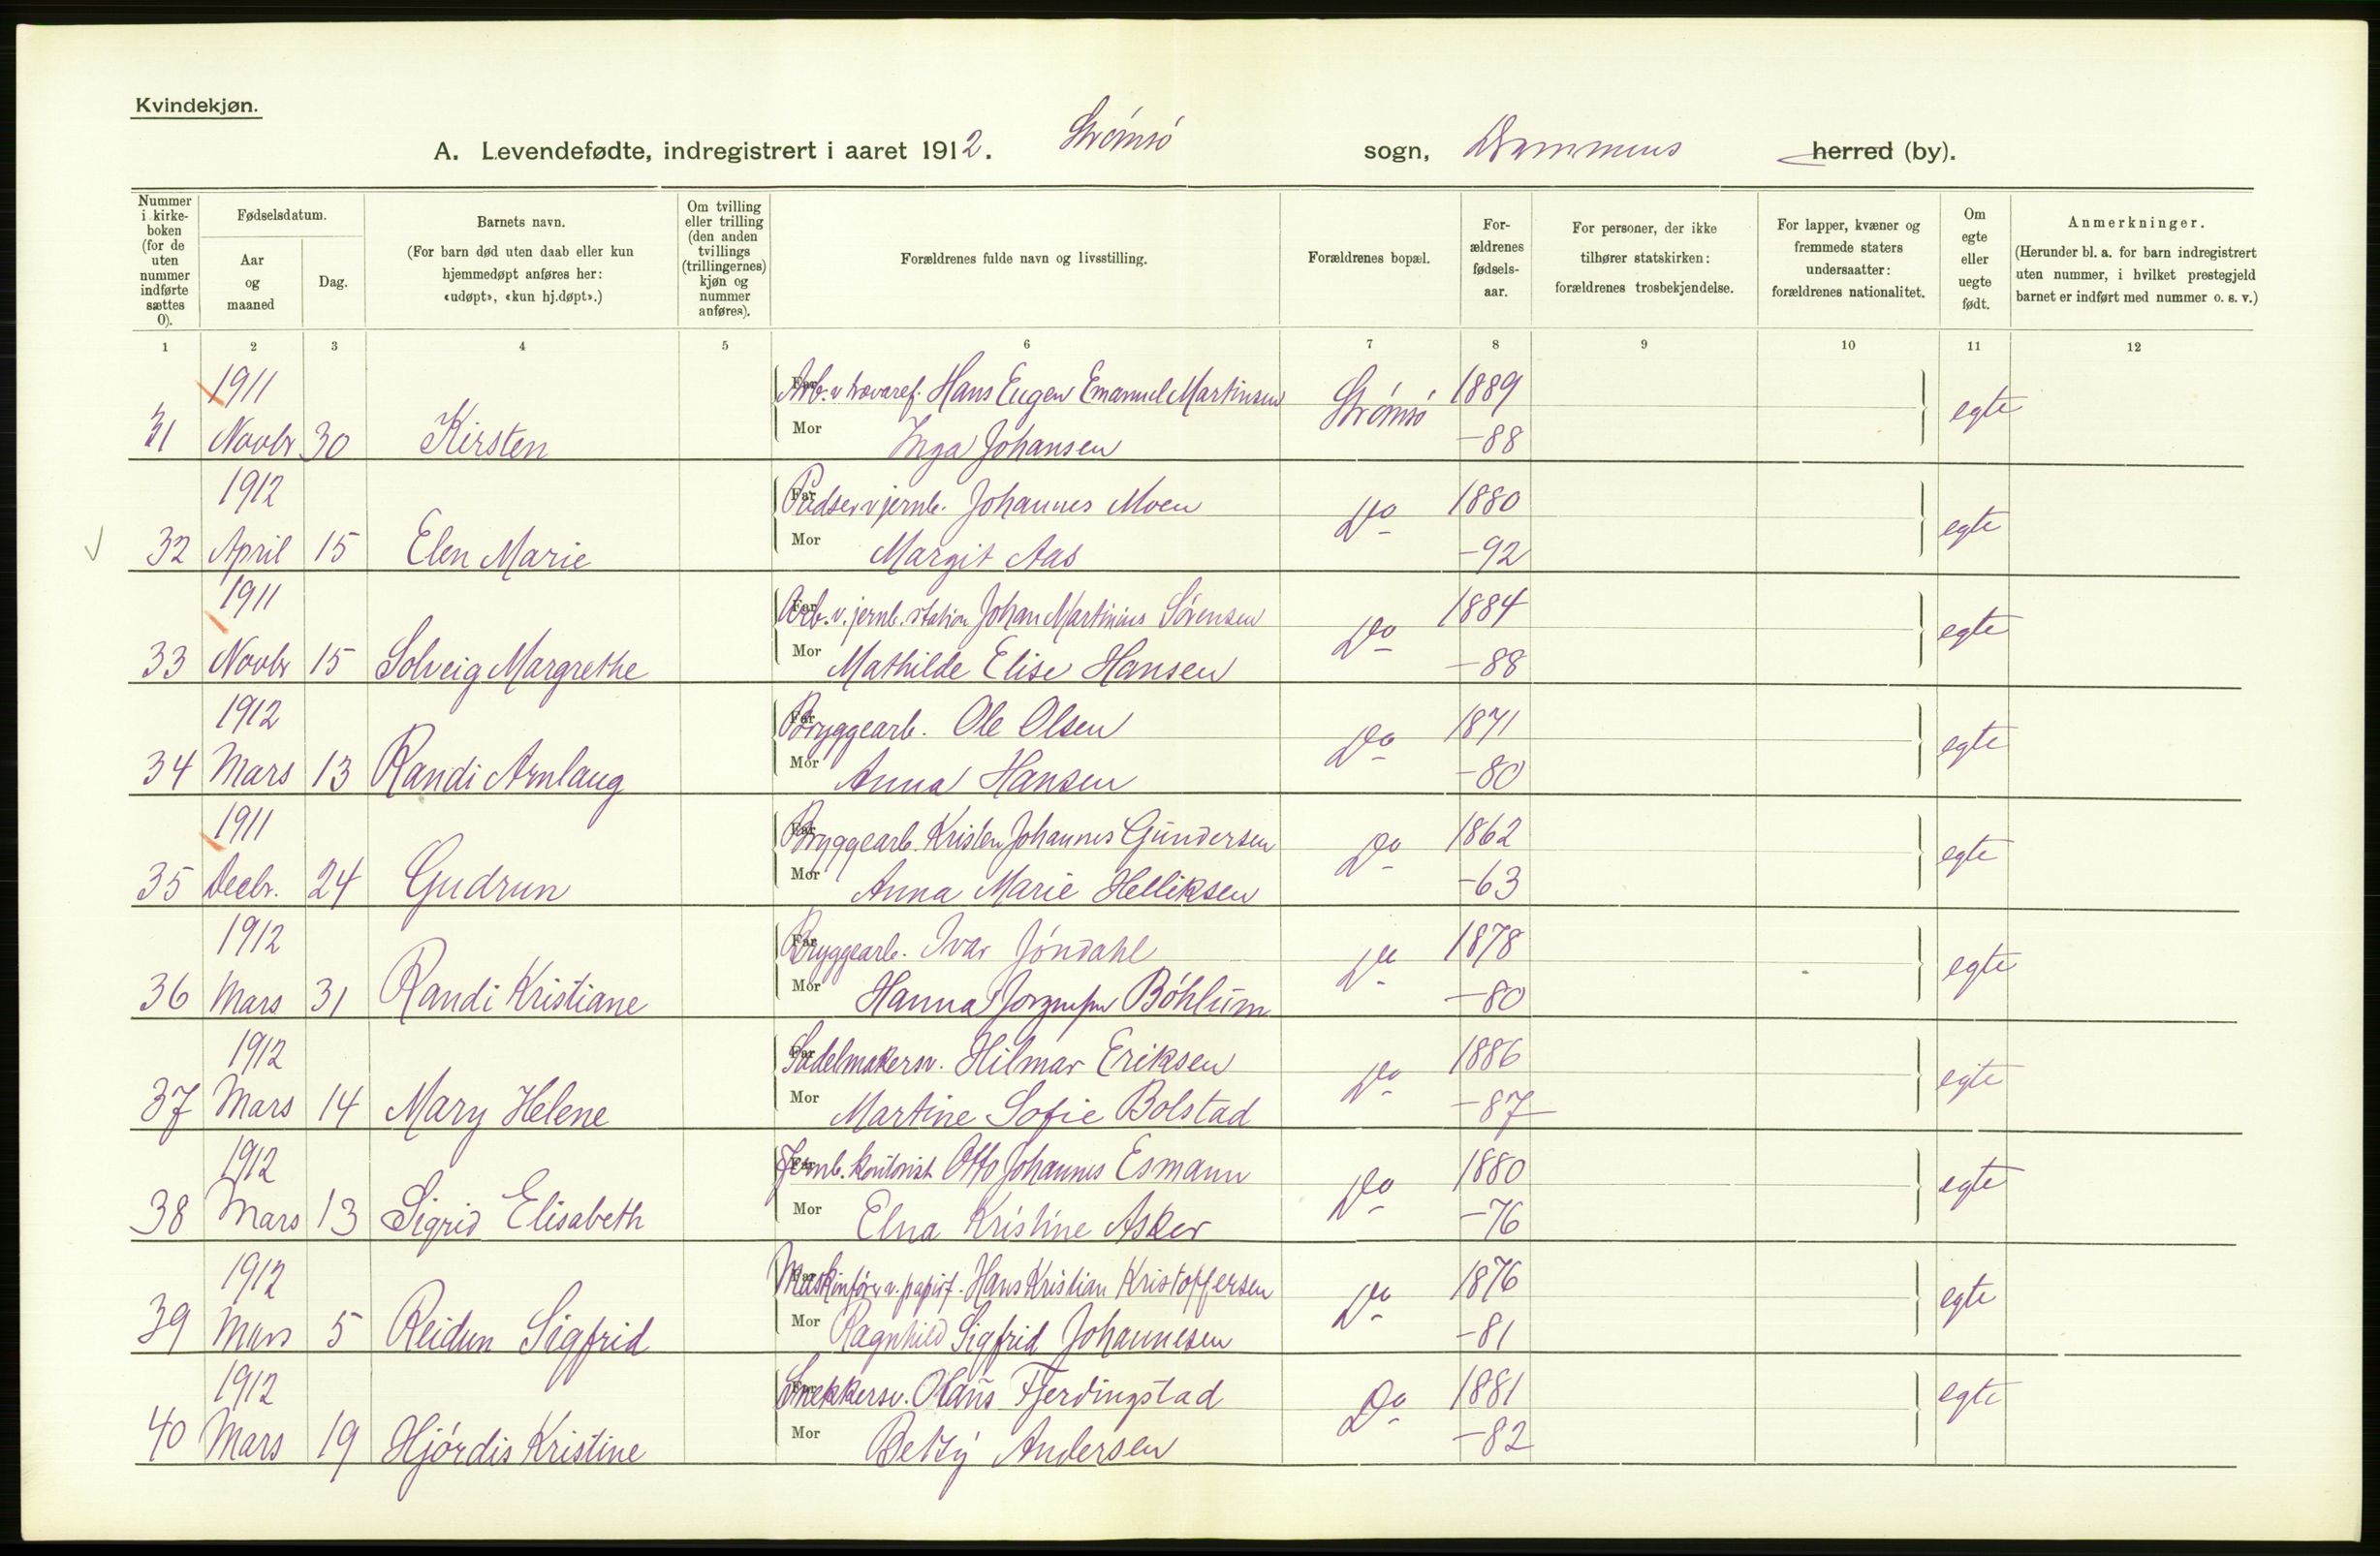 Kvindekjøn.
A. Levendefødte, indregistrert i aaret 1912. Strømsø sogn, Drammens herred (by).
Nummer i kirke-boken (for de uten nummer indførte sættes 0).
Fødselsdatum.
Aar og maaned
Dag.
Barnets navn.
(For barn død uten daab eller kun hjemmedøpt anføres her: «udøpt», «kun hj.døpt».)
Om tvilling eller trilling (den anden tvillings (trillingernes) kjøn og nummer anføres).
Forældrenes fulde navn og livsstilling.
Forældrenes bopæl.
For-ældrenes fødsels-aar.
For personer, der ikke tilhører statskirken: forældrenes trosbekjendelse.
For lapper, kvæner og fremmede staters undersaatter: forældrenes nationalitet.
Om egte eller uegte født.
Anmerkninger.
(Herunder bl. a. for barn indregistrert uten nummer, i hvilket prestegjeld barnet er indført med nummer o. s. v.)
1 2 3 4 5 6 7 8 9 10 11 12
1911 Far Arb. v trævaref. Hans Eugen Emanuel Martinsen Strømsø 1889 egte
31 Novbr 30 Kirsten Mor Inga Johansen -88
1912 Far Pudser v jernb. Johannes Moen Do 1880 egte
32 April 15 Elen Marie Mor Margit Aas -92
1911 Far Arb. v. jernb. station Johan Martinius Sørensen Do 1884 egte
33 Novbr 15 Solveig Margrethe Mor Mathilde Elise Hansen -88
1912 Far Bryggearb. Ole Olsen Do 1871 egte
34 Mars 13 Randi Arnlaug Mor Anna Hansen -80
1911 Far Bryggearb. Kristen Johannes Gundersen Do 1862 egte
35 Decbr. 24 Gudrun Mor Anna Marie Helliksen -63
1912 Far Bryggearb. Ivar Jøndahl Do 1878 egte
36 Mars 31 Randi Kristiane Mor Hanna Bøhlum -80
1912 Far Sadelmakersv. Hilmar Eriksen Do 1886 egte
37 Mars 14 Mary Helene Mor Martine Sofie Bolstad -87
1912 Far Jernb. kontorist Otto Johannes Esmann Do 1880 egte
38 Mars 13 Sigrid Elisabeth Mor Elna Kristine Asker -76
1912 Far Maskinfører v. papirf. Hans Kristian Kristoffersen Do 1876 egte
39 Mars 5 Reidun Sigfrid Mor Ragnhild Sigfrid Johannesen -81
1912 Far Snekkersv. Olaus Fjerdingstad Do 1881 egte
40 Mars 19 Hjørdis Kristine Mor Betzy Andersen -82